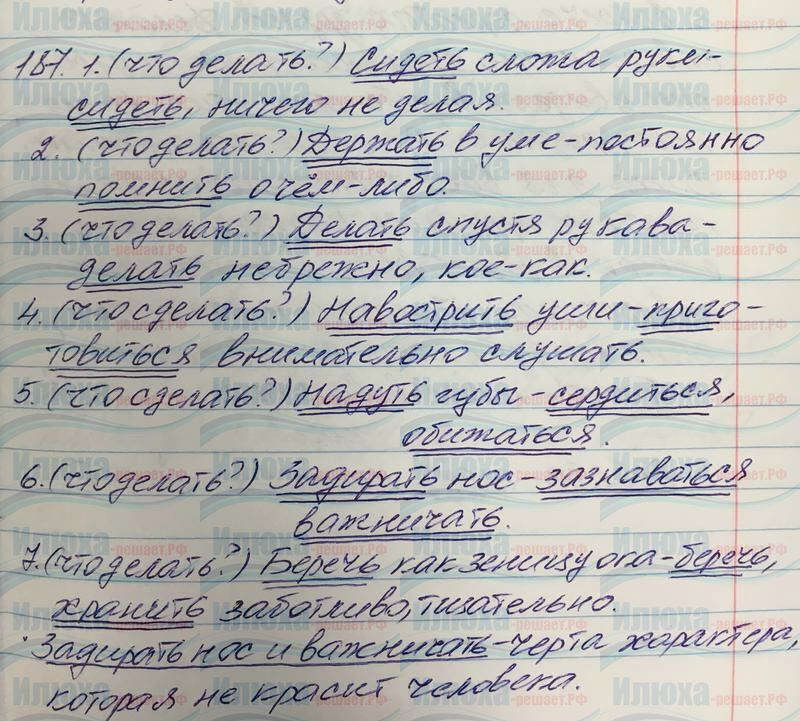 187. 1. (что делать?) Сидеть сложа руки-
сидеть, ничего не делая.
2. (что делать?) Держать в уме - постоянно
помнить о чём-либо.
3. (что делать?) Делать спустя рукава -
делать небрежно, кое-как.
4. (что сделать?) Навострить уши - приго-
товиться внимательно слушать.
5. (что сделать?) Надуть губы - сердиться,
обижаться.
6. (что делать?) Задирать нос - зазнаваться
важничать.
7. (что делать?) Беречь как зеницу ока - беречь,
хранить заботливо, тщательно.
Задирать нос и важничать - черта характера,
которая не красит человека.